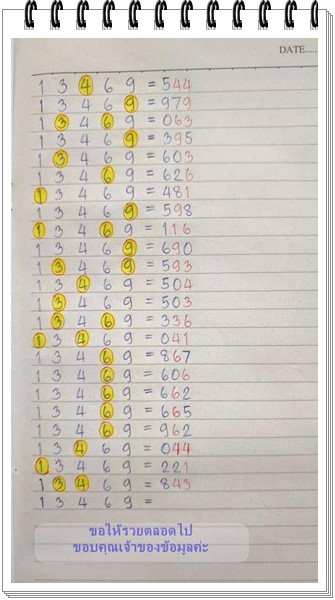 DATE.....
1 3 4 6 9 = 544
1 3 4 6 9 = 979
1 3 4 6 9 = 063
1 3 4 6 9 = 395
1 3 4 6 9 = 603
1 3 4 6 9 = 626
1 3 4 6 9 = 481
1 3 4 6 9 = 598
1 3 4 6 9 = 116
1 3 4 6 9 = 690
1 3 4 6 9 = 593
1 3 4 6 9 = 504
1 3 4 6 9 = 503
1 3 4 6 9 = 336
1 3 4 6 9 = 041
1 3 4 6 9 = 867
1 3 4 6 9 = 606
1 3 4 6 9 = 662
1 3 4 6 9 = 665
1 3 4 6 9 = 962
1 3 4 6 9 = 044
1 3 4 6 9 = 221
1 3 4 6 9 = 843
1 3 4 6 9 =
ขอให้รวยตลอดไป
ขอบคุณเจ้าของข้อมูลค่ะ